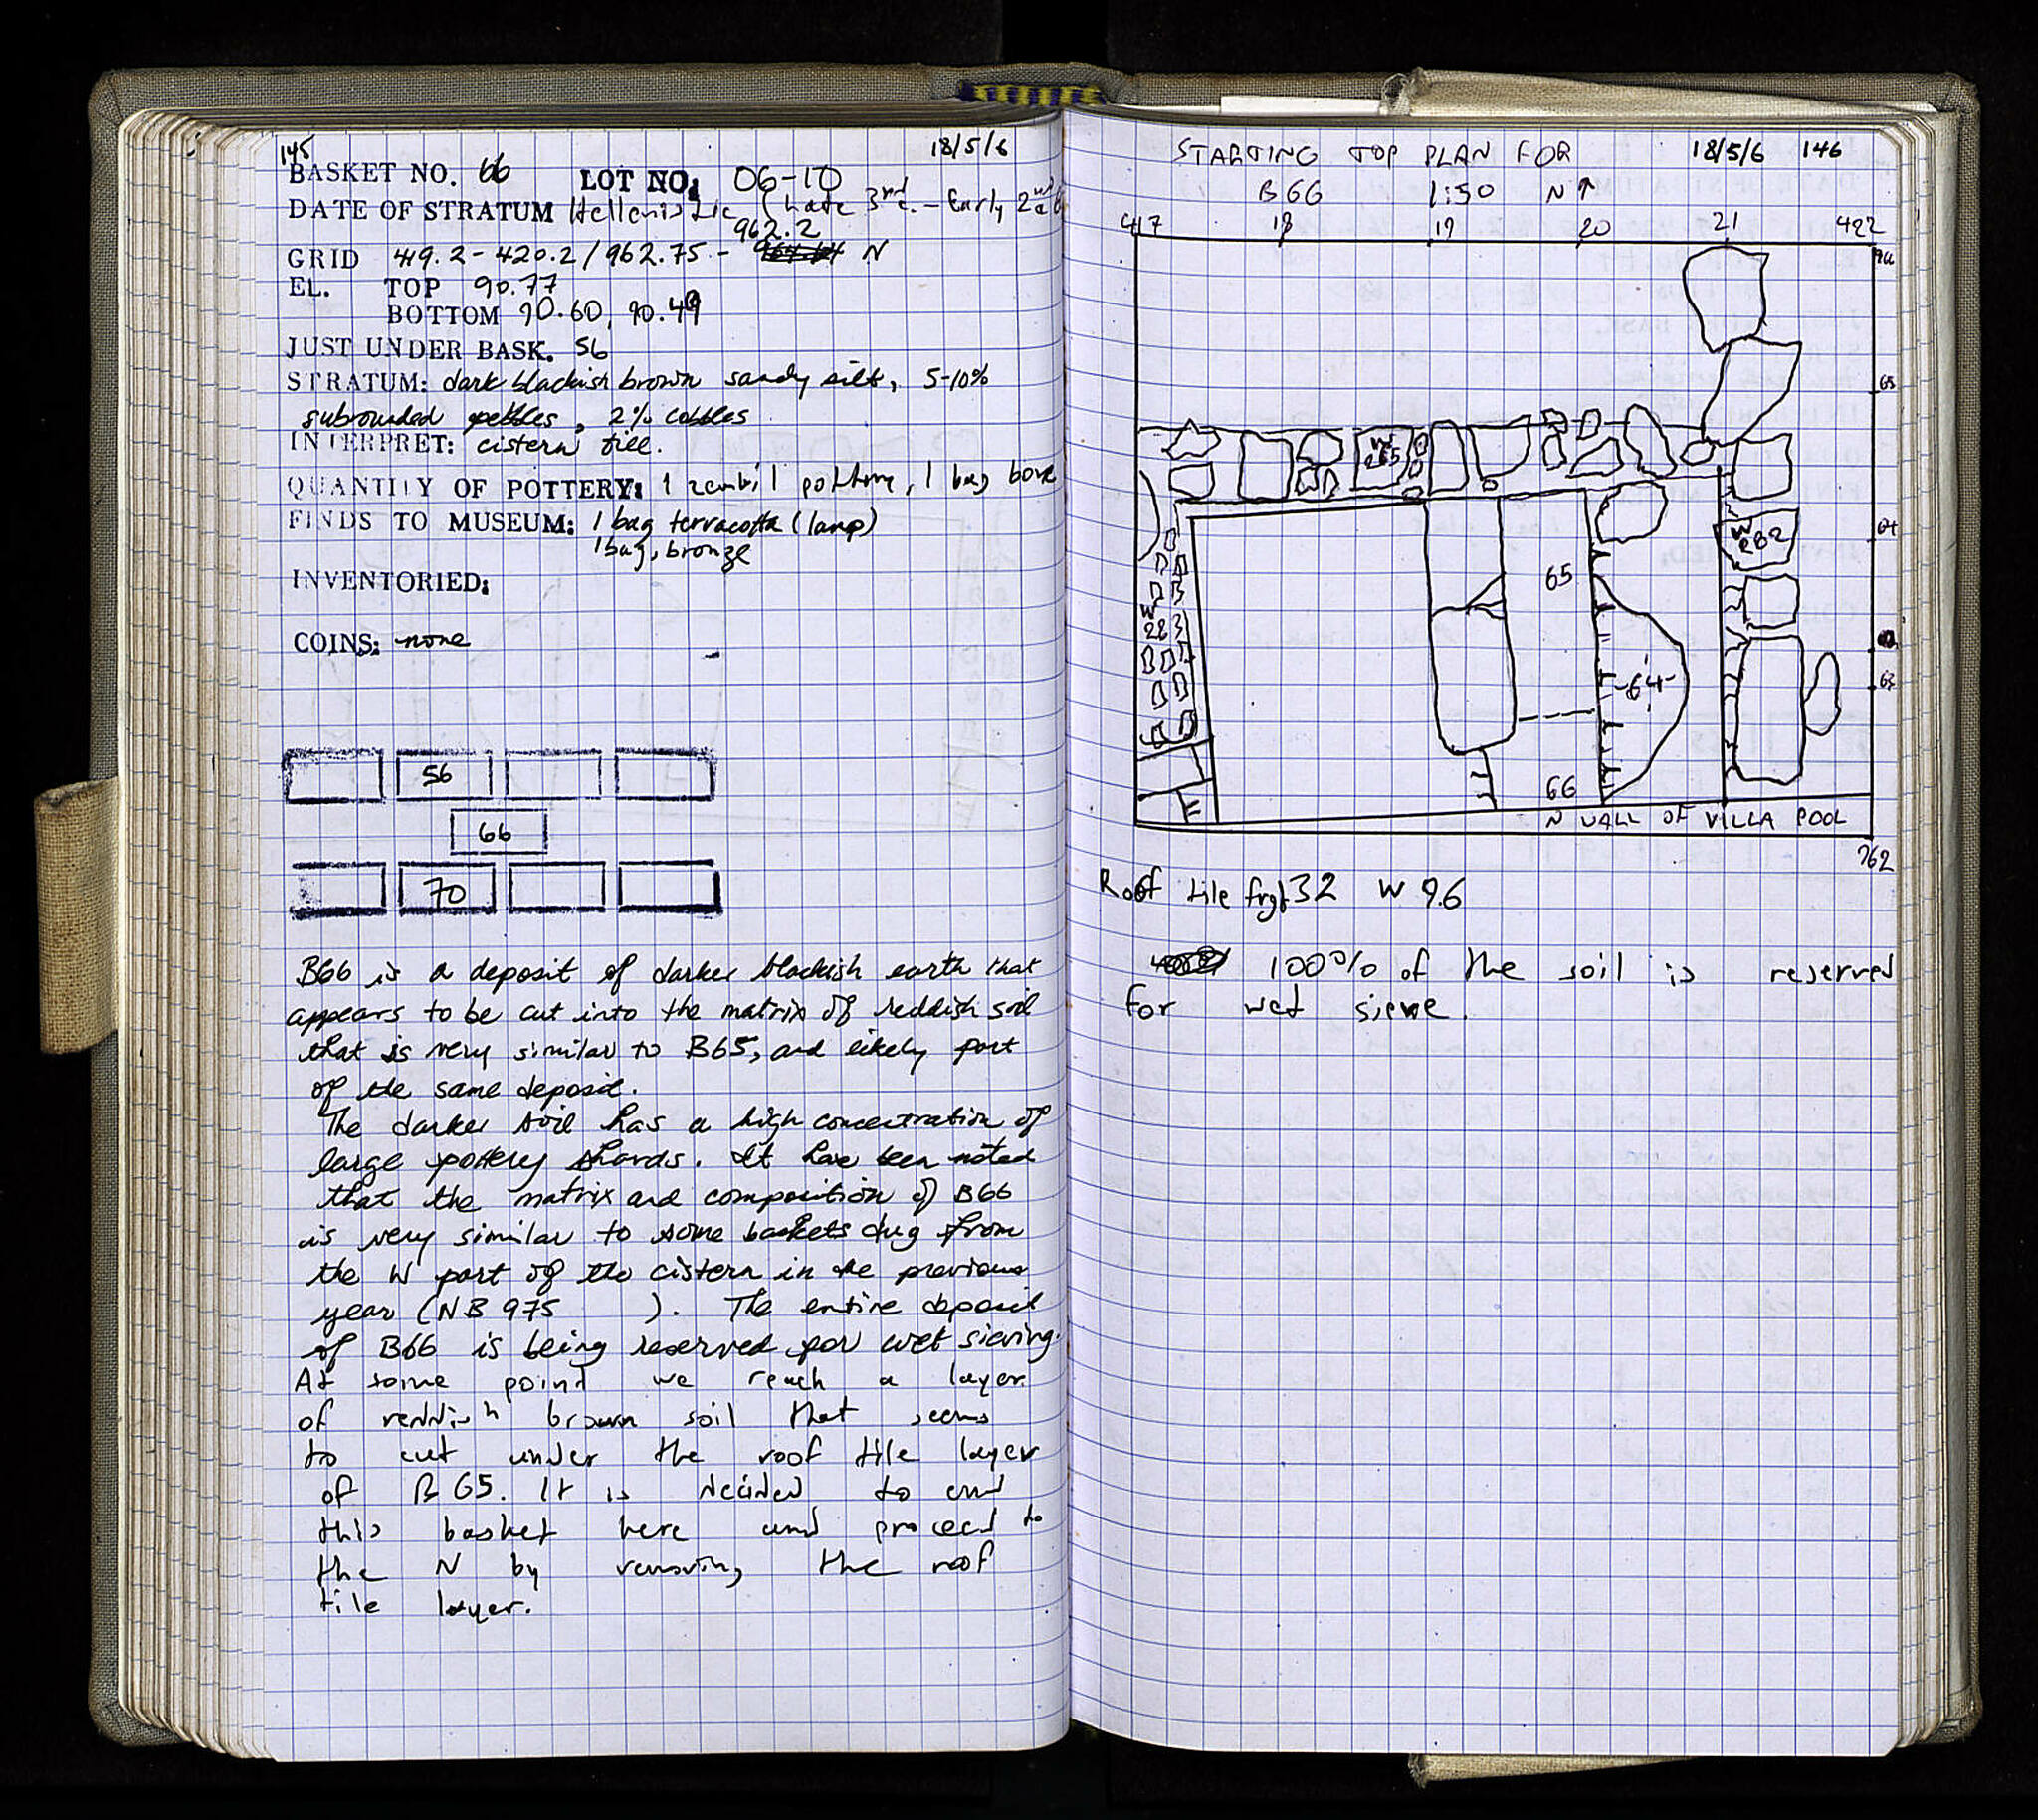 145
18/5/6
BASKET NO. 66 LOT NO: 06-10
DATE OF STRATUM Hellenistic (Late 3rd c. - Early 2nd c.
962.2
GRID 419.2 - 420.2 / 962.75 - N
EL. TOP 90.77
BOTTOM 90.60, 90.49
JUST UNDER BASK. 56
STRATUM: dark blackish brown sandy silt, 5-10%
subrounded pebbles, 2% cobbles
INTERPRET: cistern fill.
QUANTITY OF POTTERY: 1 zembil pottery, 1 bag bone
FINDS TO MUSEUM: 1 bag terracotta (lamp)
1 bag, bronze
INVENTORIED:
COINS: none
56
66
70
B66 is a deposit of darker blackish earth that
appears to be cut into the matrix of reddish soil
that is very similar to B65, and likely part
of the same deposit.
The darker soil has a high concentration of
large pottery shards. It have been noted
that the matrix and composition of B66
is very similar to some baskets dug from
the W part of the cistern in the previous
year (NB 975 ). The entire deposit
of B66 is being reserved for wet sieving.
At some point we reach a layer
of reddish brown soil that seems
to cut under the roof tile layer
of B65. It is decided to end
this basket here and proceed to
the N by removing the roof
tile layer.
STARTING TOP PLAN FOR 18/5/6 146
B66 1:50 N↑
417 18 19 20 21 422
65
W
265
64
W
282
65
W
223
-64-
63
66
N WALL OF VILLA POOL
962
Roof tile frgt 32 W 9.6
100% of the soil is reserved
for wet sieve.